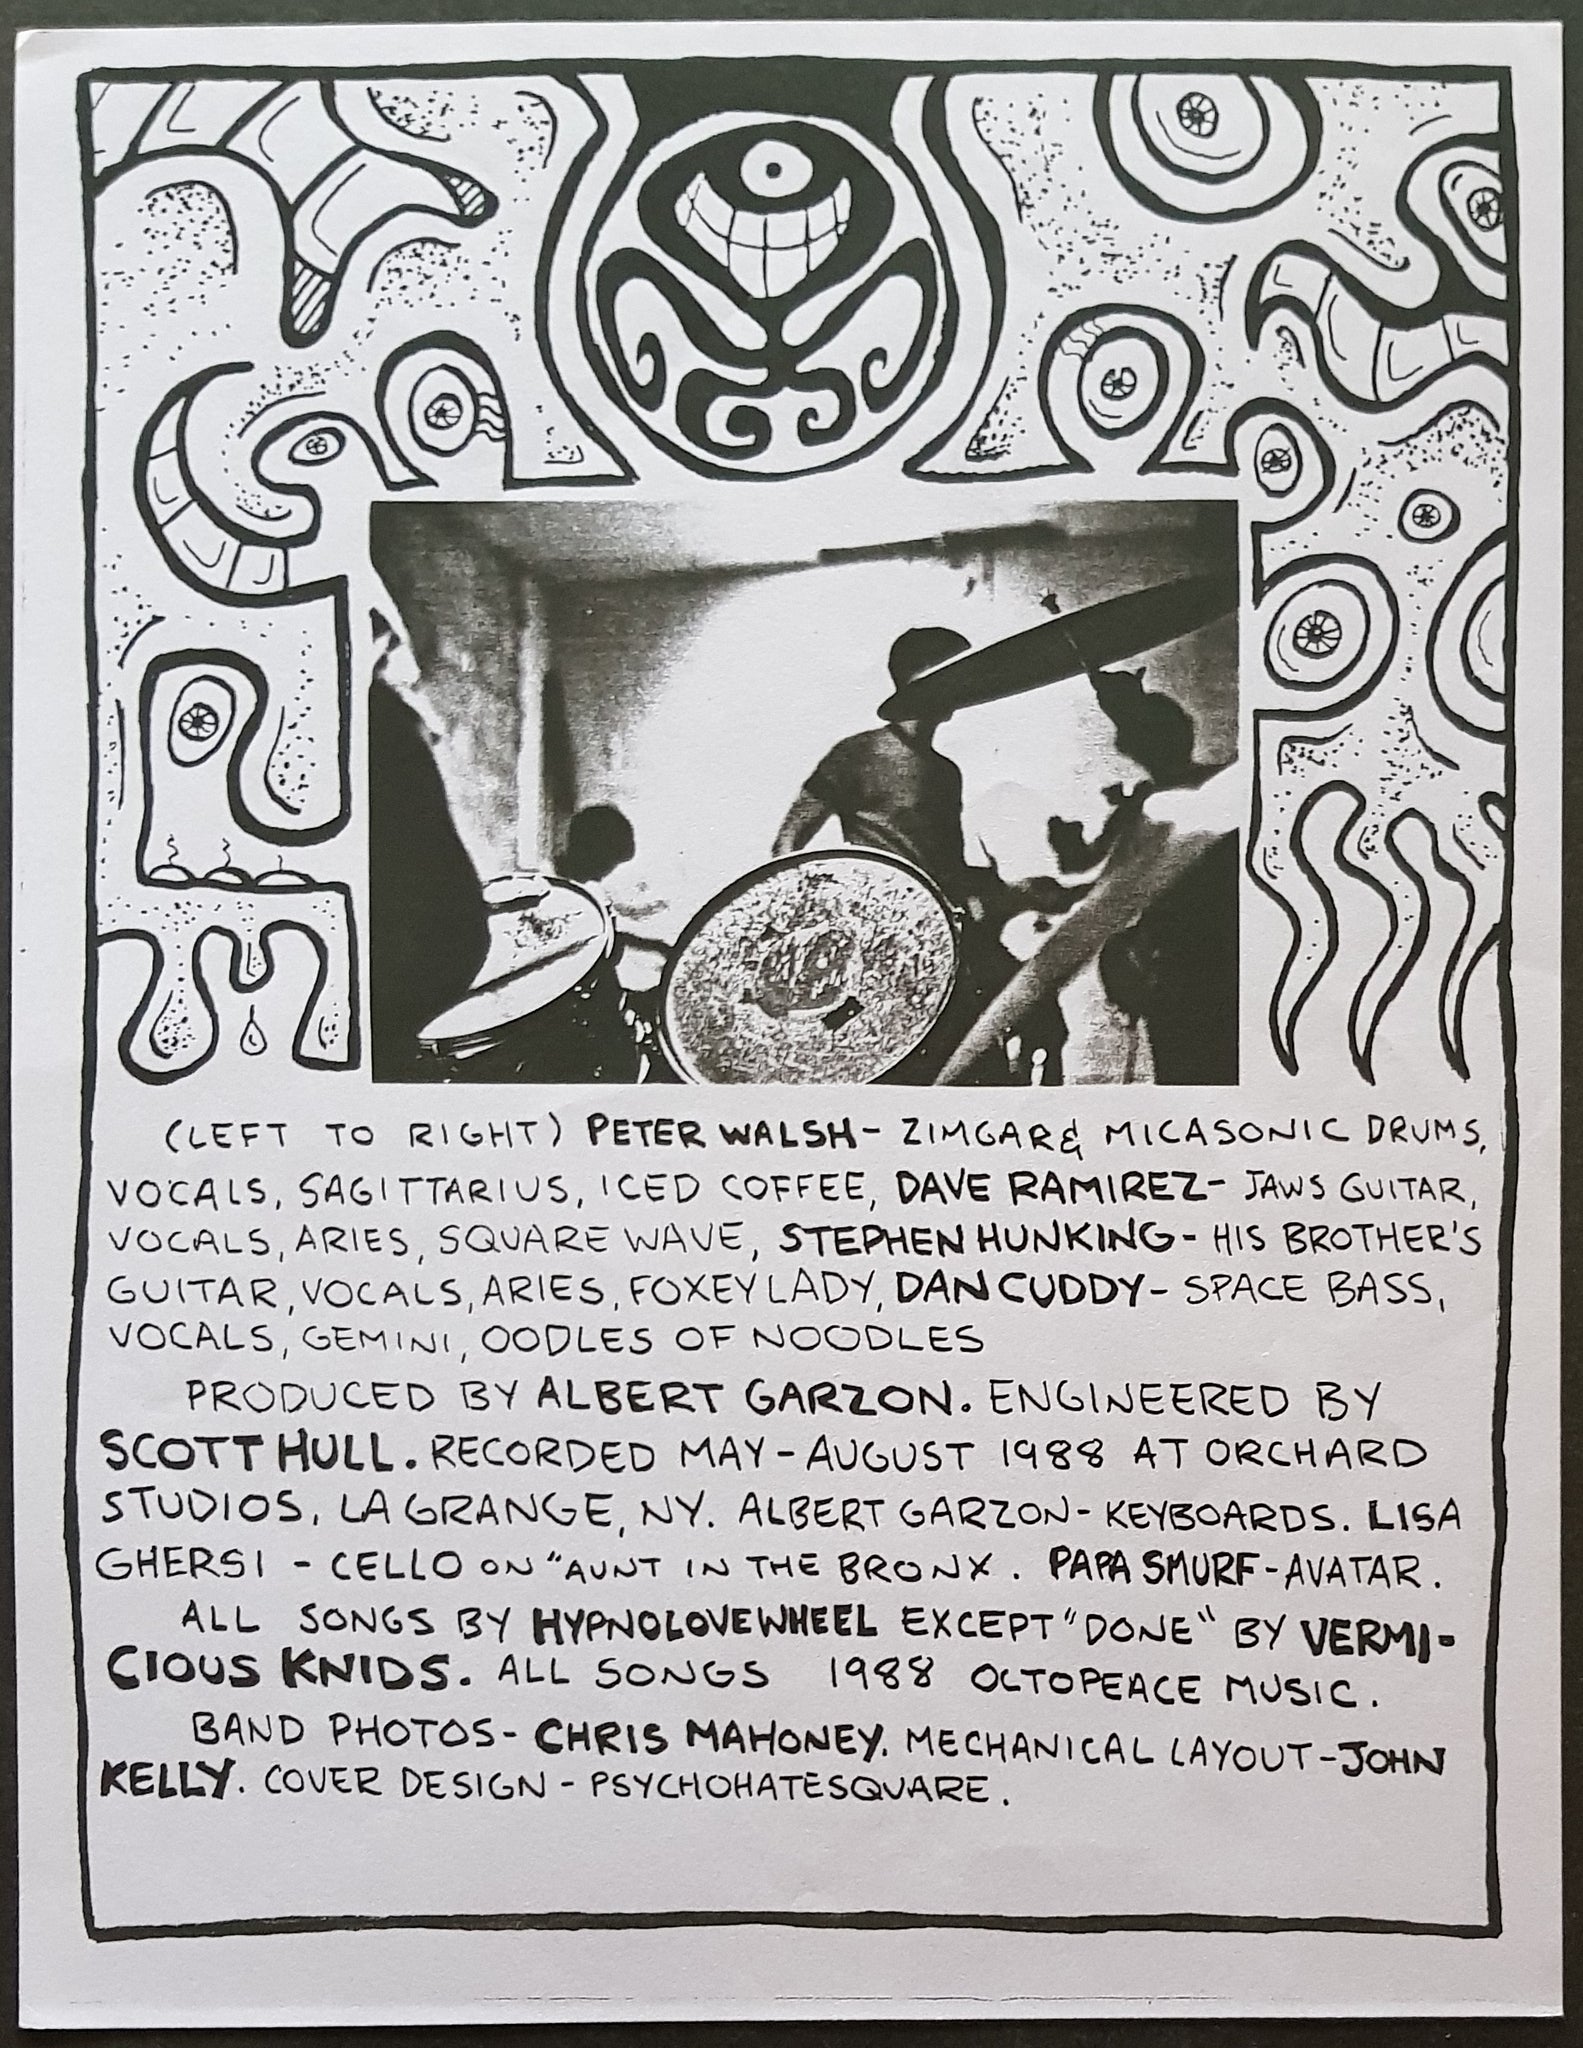 (LEFT TO RIGHT) PETER WALSH- ZIMGAR & MICASONIC DRUMS,
VOCALS, SAGITTARIUS, ICED COFFEE, DAVE RAMIREZ- JAWS GUITAR,
VOCALS, ARIES, SQUARE WAVE, STEPHEN HUNKING- HIS BROTHER'S
GUITAR, VOCALS, ARIES, FOXEY LADY, DAN CUDDY- SPACE BASS,
VOCALS, GEMINI, OODLES OF NOODLES
PRODUCED BY ALBERT GARZON. ENGINEERED BY
SCOTT HULL. RECORDED MAY-AUGUST 1988 AT ORCHARD
STUDIOS, LA GRANGE, NY. ALBERT GARZON- KEYBOARDS. LISA
GHERSI - CELLO ON "AUNT IN THE BRONX. PAPA SMURF-AVATAR.
ALL SONGS BY HYPNOLOVEWHEEL EXCEPT "DONE" BY VERMI-
CIOUS KNIDS. ALL SONGS 1988 OCTOPEACE MUSIC.
BAND PHOTOS- CHRIS MAHONEY. MECHANICAL LAYOUT-JOHN
KELLY. COVER DESIGN - PSYCHOHATESQUARE.